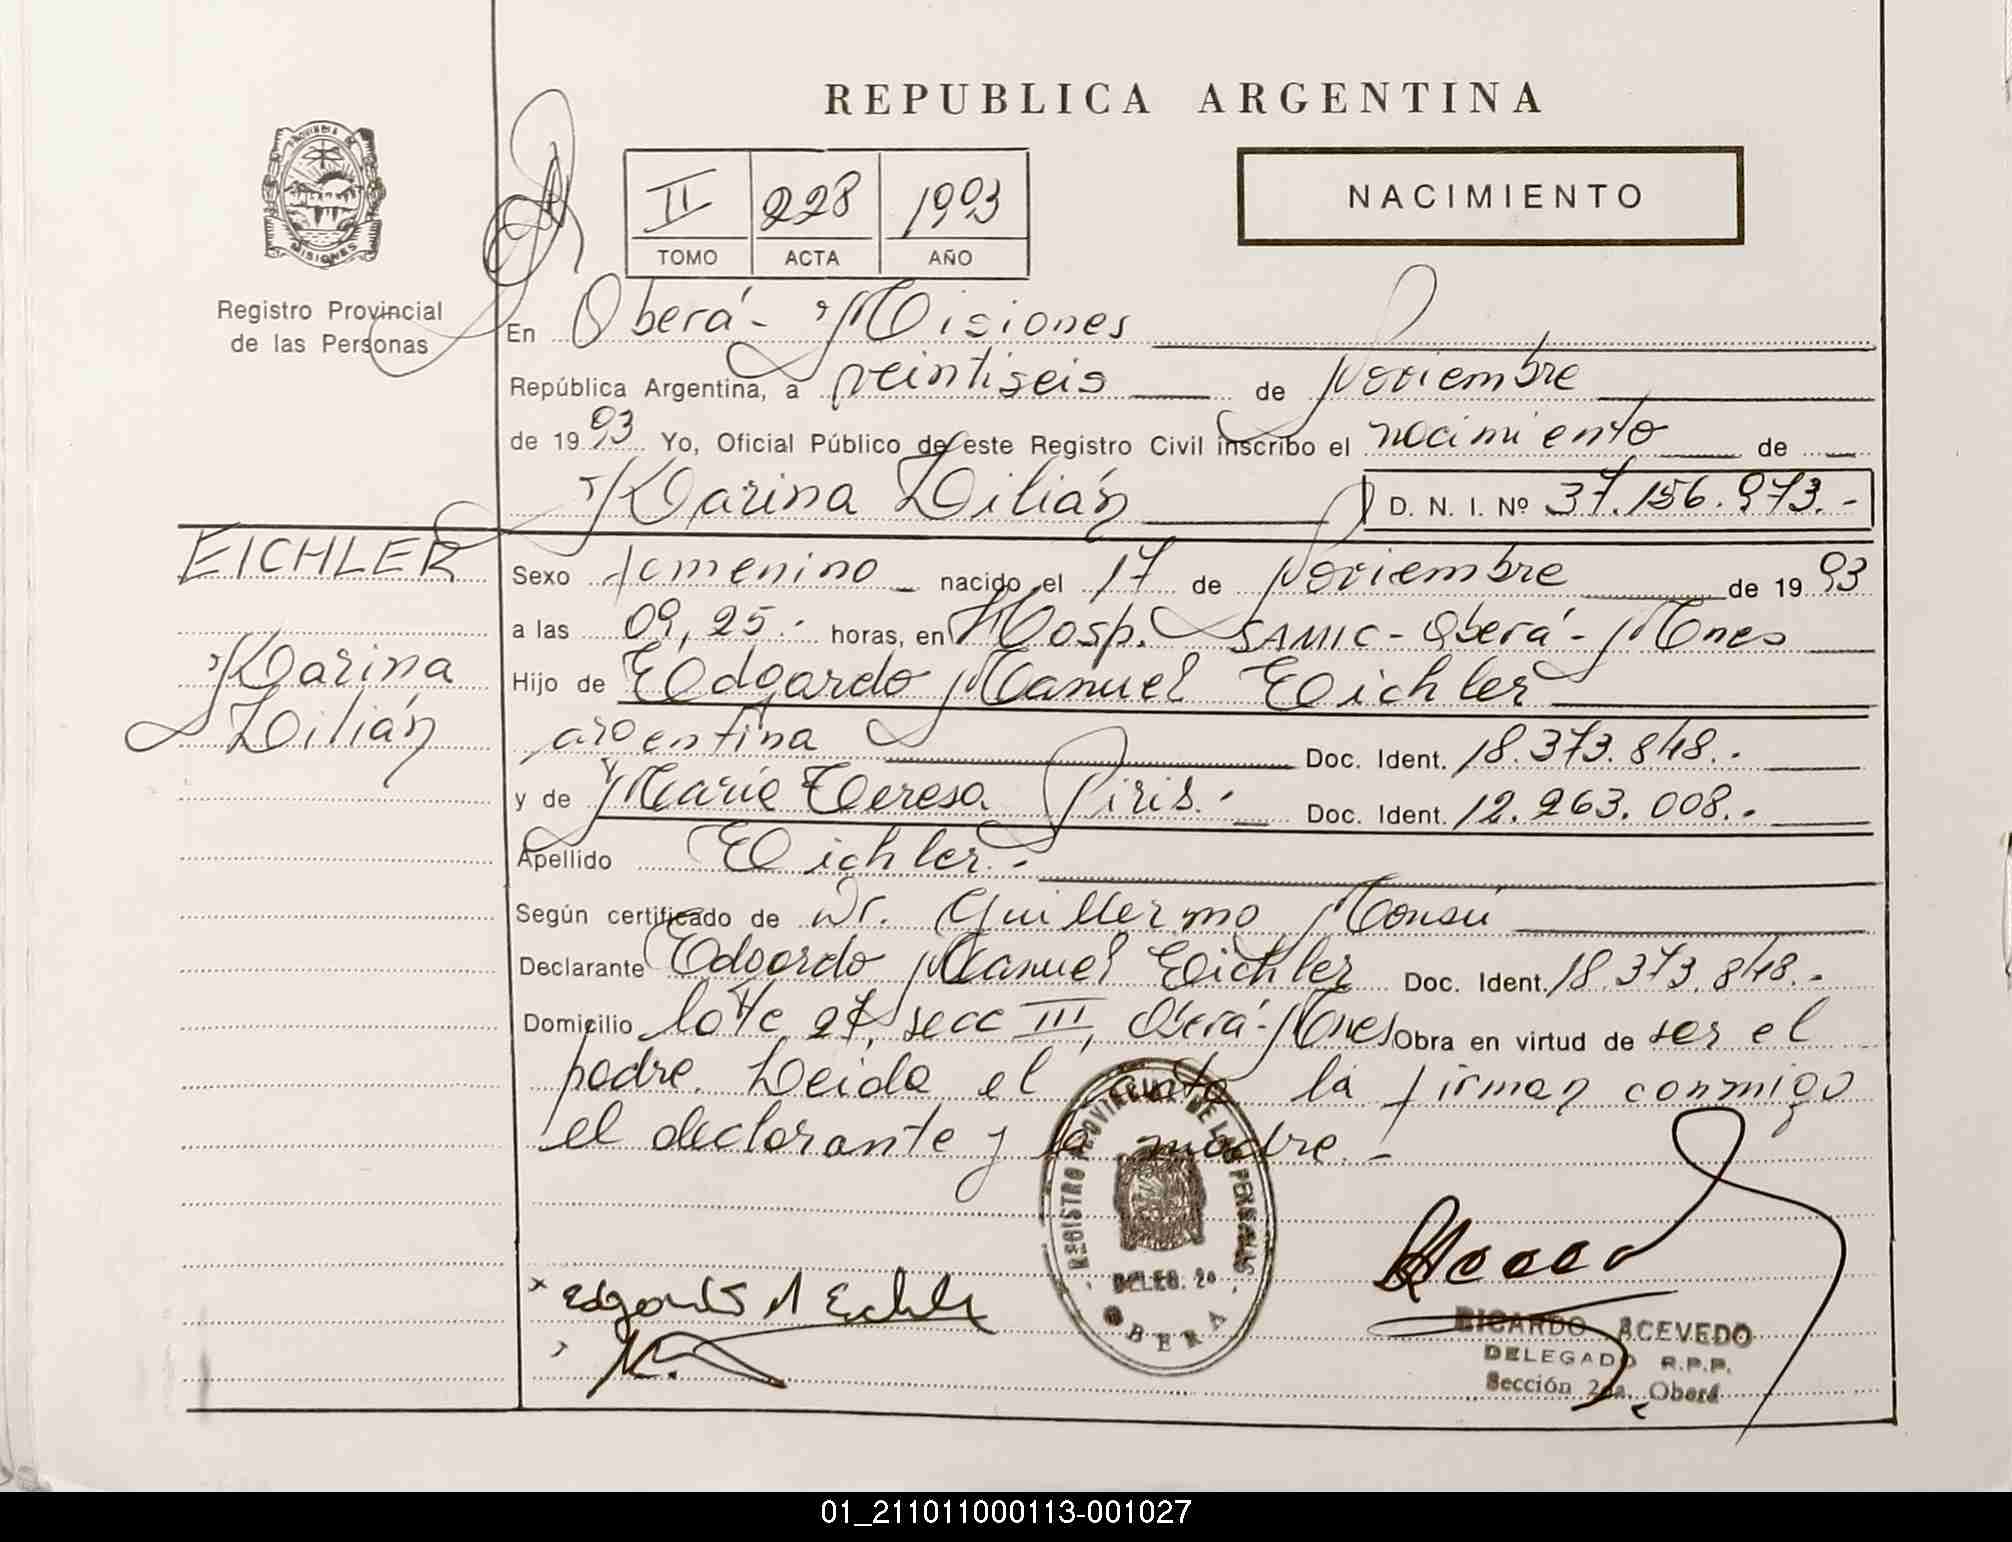 REPUBLICA ARGENTINA
PROVINCIA DE
MISIONES
Registro Provincial
de las Personas
II 228 1993
TOMO ACTA AÑO
NACIMIENTO
En Oberá - Misiones
República Argentina, a veintiseis de Noviembre
de 1993 Yo, Oficial Público de este Registro Civil inscribo el nacimiento de
Karina Lilián D. N. I. Nº 37.156.973.-
EICHLER
Karina
Lilián
Sexo femenino nacido el 17 de Noviembre de 1993
a las 09,25.- horas, en Hosp. SAMIC - Oberá - Mnes
Hijo de Edgardo Manuel Eichler
argentina Doc. Ident. 18.373.848.-
y de María Teresa Piris.- Doc. Ident. 12.263.008.-
Apellido Eichler.-
Según certificado de Dr. Guillermo Monsú
Declarante Edgardo Manuel Eichler Doc. Ident. 18.373.848.-
Domicilio lote 27, secc III, Oberá - Mnes Obra en virtud de ser el
padre. Leída el acta la firman conmigo
el declarante y la madre.-
REGISTRO PROVINCIAL DE LAS PERSONAS
DELEG. 2a
OBERA
Edgardo M Eichler
M.
RICARDO ACEVEDO
DELEGADO R.P.P.
Sección 2da. Oberá
01_211011000113-001027